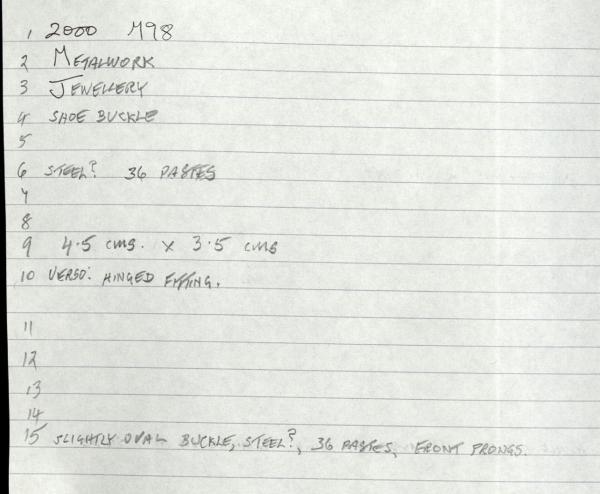 1 2000 M98
2 METALWORK
3 JEWELLERY
4 SHOE BUCKLE
5
6 STEEL? 36 PASTES
7
8
9 4.5 cms. x 3.5 cms
10 VERSO: HINGED FITTING.
11
12
13
14
15 SLIGHTLY OVAL BUCKLE, STEEL?, 36 PASTES, FRONT PRONGS.